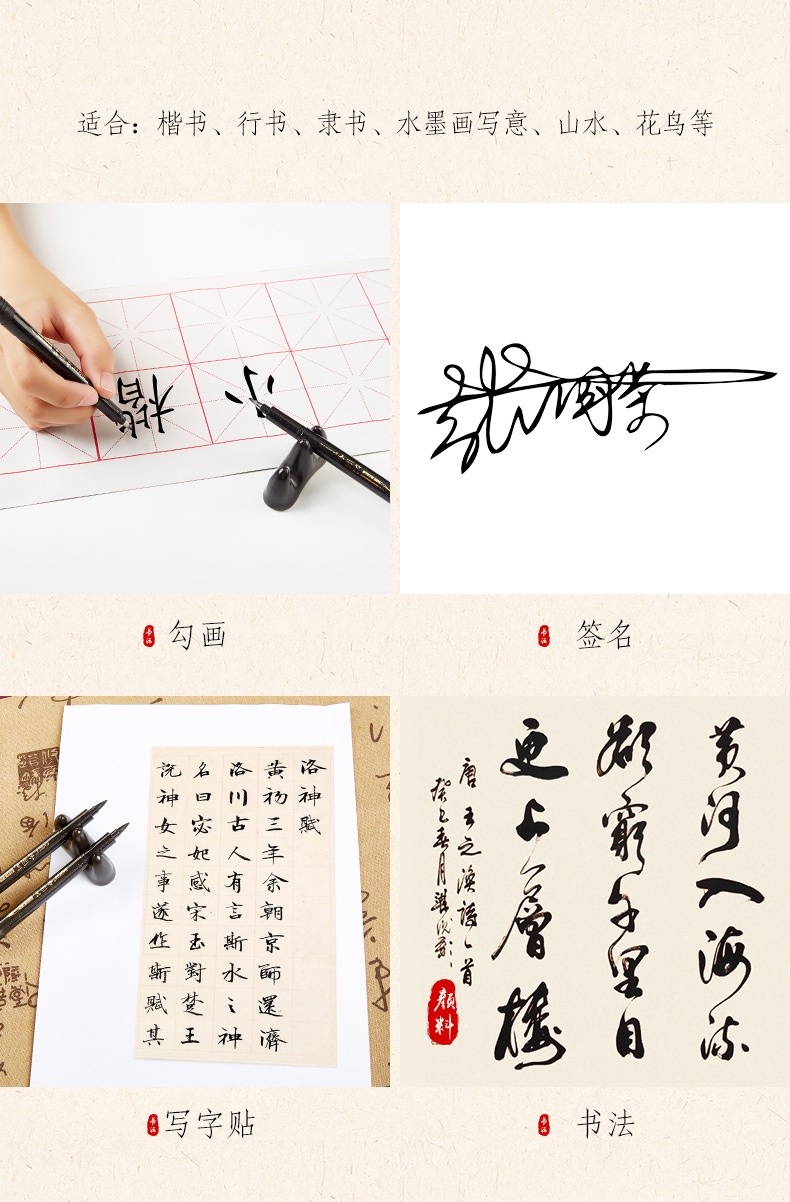 适合：楷书、行书、隶书、水墨画写意、山水、花鸟等
楷
小
书法 勾画
书法 签名
洛神赋
黄初三年余朝京師還濟
洛川古人有言斯水之神
名曰宓妃感宋玉對楚王
說神女之事遂作斯赋其
黄河入海流
欲窮千里目
更上一層樓
唐王之渙詩一首
癸巳春月
颜料
书法 写字贴
书法 书法